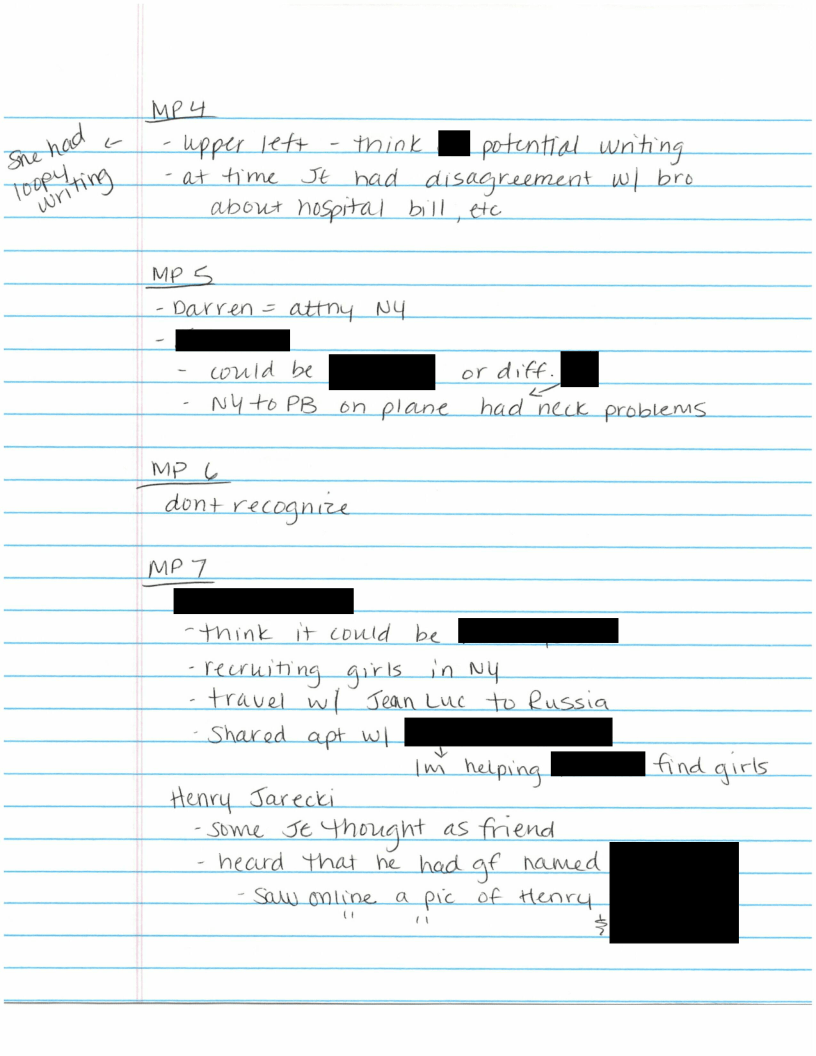 MP 4
She had ← loopy writing
- upper left - think potential writing
- at time JE had disagreement w/ bro
about hospital bill, etc
MP 5
- Darren = attny NY
-
- could be or diff.
- NY to PB on plane had neck problems
MP 6
dont recognize
MP 7
- think it could be
- recruiting girls in NY
- travel w/ Jean Luc to Russia
- Shared apt w/
↓
Im helping find girls
Henry Jarecki
- some JE thought as friend
- heard that he had gf named
- saw online a pic of Henry
" " &